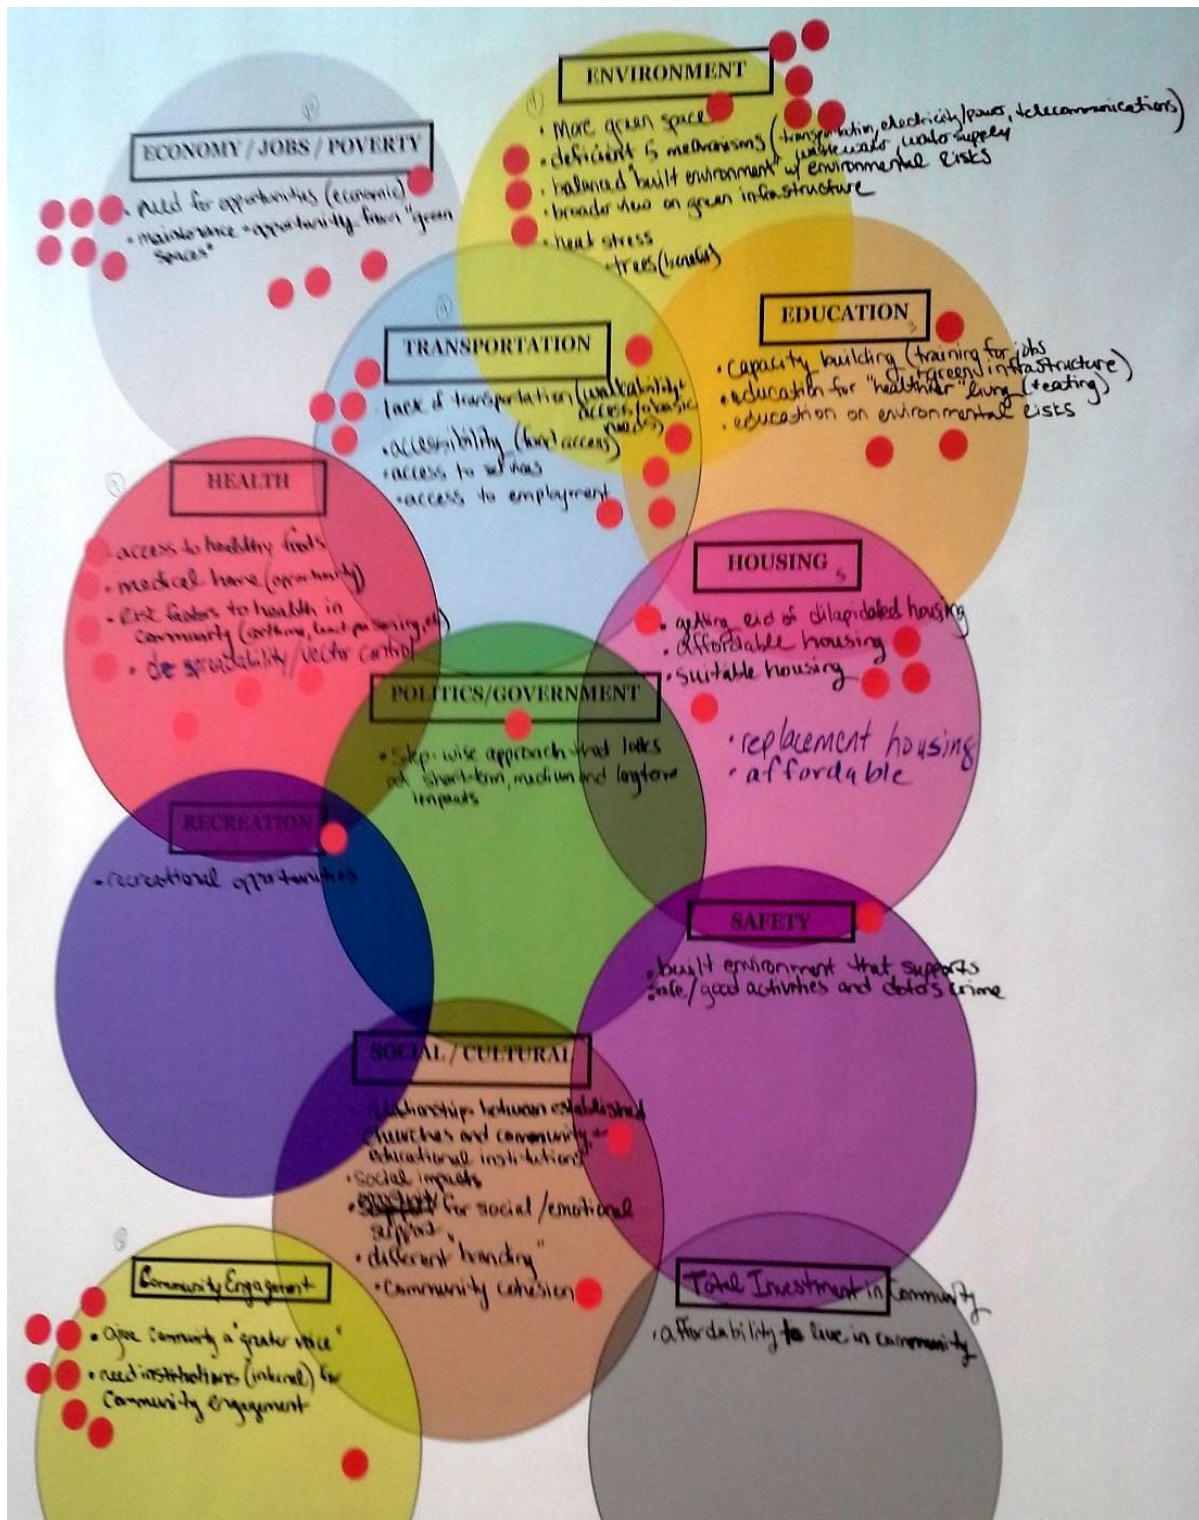 ENVIRONMENT
• More green space
• deficient 5 mechanisms (transportation, electricity/power, telecommunications)
wastewater, water supply
• balanced "built environment" w/ environmental risks
• broader view on green infrastructure
• heat stress
- trees (benefits)
10
ECONOMY / JOBS / POVERTY
• need for opportunities (economic)
• maintenance + opportunity from "green
spaces"
TRANSPORTATION
lack of transportation (walkability +
access to basic
needs)
• accessibility (food access)
• access to services
• access to employment
EDUCATION
3
• capacity building (training for jobs
+ green infrastructure)
• education for "healthier" living (+ eating)
• education on environmental risks
HEALTH
• access to healthy foods
• medical home (opportunity)
• risk factors to health in
community (asthma, lead poisoning, etc)
• spreadability/vector control
HOUSING
5
• getting rid of dilapidated housing
• affordable housing
• suitable housing
• replacement housing
• affordable
POLITICS/GOVERNMENT
• Step-wise approach that looks
at short-term, medium and longterm
impacts
RECREATION
• recreational opportunities
SAFETY
• built environment that supports
safe/good activities and crime
SOCIAL / CULTURAL
relationships between established
churches and community +
educational institutions
• social impacts
• for social/emotional
support
• different "branding"
• Community cohesion
8
Community Engagement
• give community a "greater voice"
• need institutions (internal) for
Community engagement
Total Investment in Community
• affordability to live in community